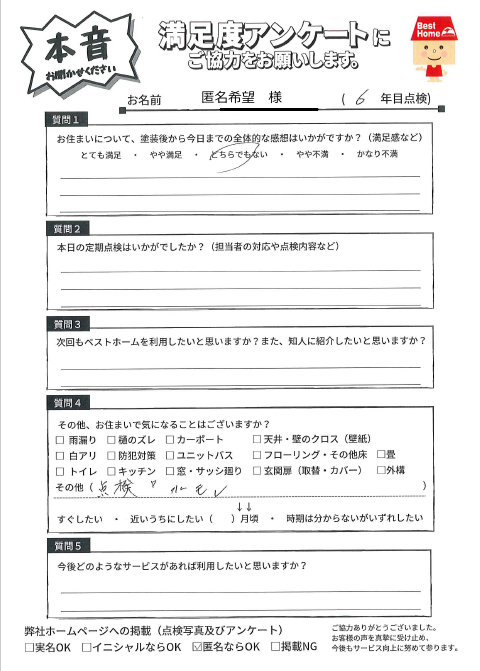 本音
お聞かせください
満足度アンケートに
ご協力をお願いします。
Best Home
お名前 匿名希望 様 ( 6 年目点検)
質問1
お住まいについて、塗装後から今日までの全体的な感想はいかがですか？（満足感など）
とても満足 ・ やや満足 ・ どちらでもない ・ やや不満 ・ かなり不満
質問2
本日の定期点検はいかがでしたか？（担当者の対応や点検内容など）
質問3
次回もベストホームを利用したいと思いますか？また、知人に紹介したいと思いますか？
質問4
その他、お住まいで気になることはございますか？
□ 雨漏り □ 樋のズレ □ カーポート □ 天井・壁のクロス（壁紙）
□ 白アリ □ 防犯対策 □ ユニットバス □ フローリング・その他床 □畳
□ トイレ □ キッチン □ 窓・サッシ廻り □ 玄関扉（取替・カバー） □外構
その他（点検 ）
↓↓
すぐしたい ・ 近いうちにしたい（ ）月頃 ・ 時期は分からないがいずれしたい
質問5
今後どのようなサービスがあれば利用したいと思いますか？
弊社ホームページへの掲載（点検写真及びアンケート）
□実名OK □イニシャルならOK ☑匿名ならOK □掲載NG
ご協力ありがとうございました。
お客様の声を真摯に受け止め、
今後もサービス向上に努めて参ります。